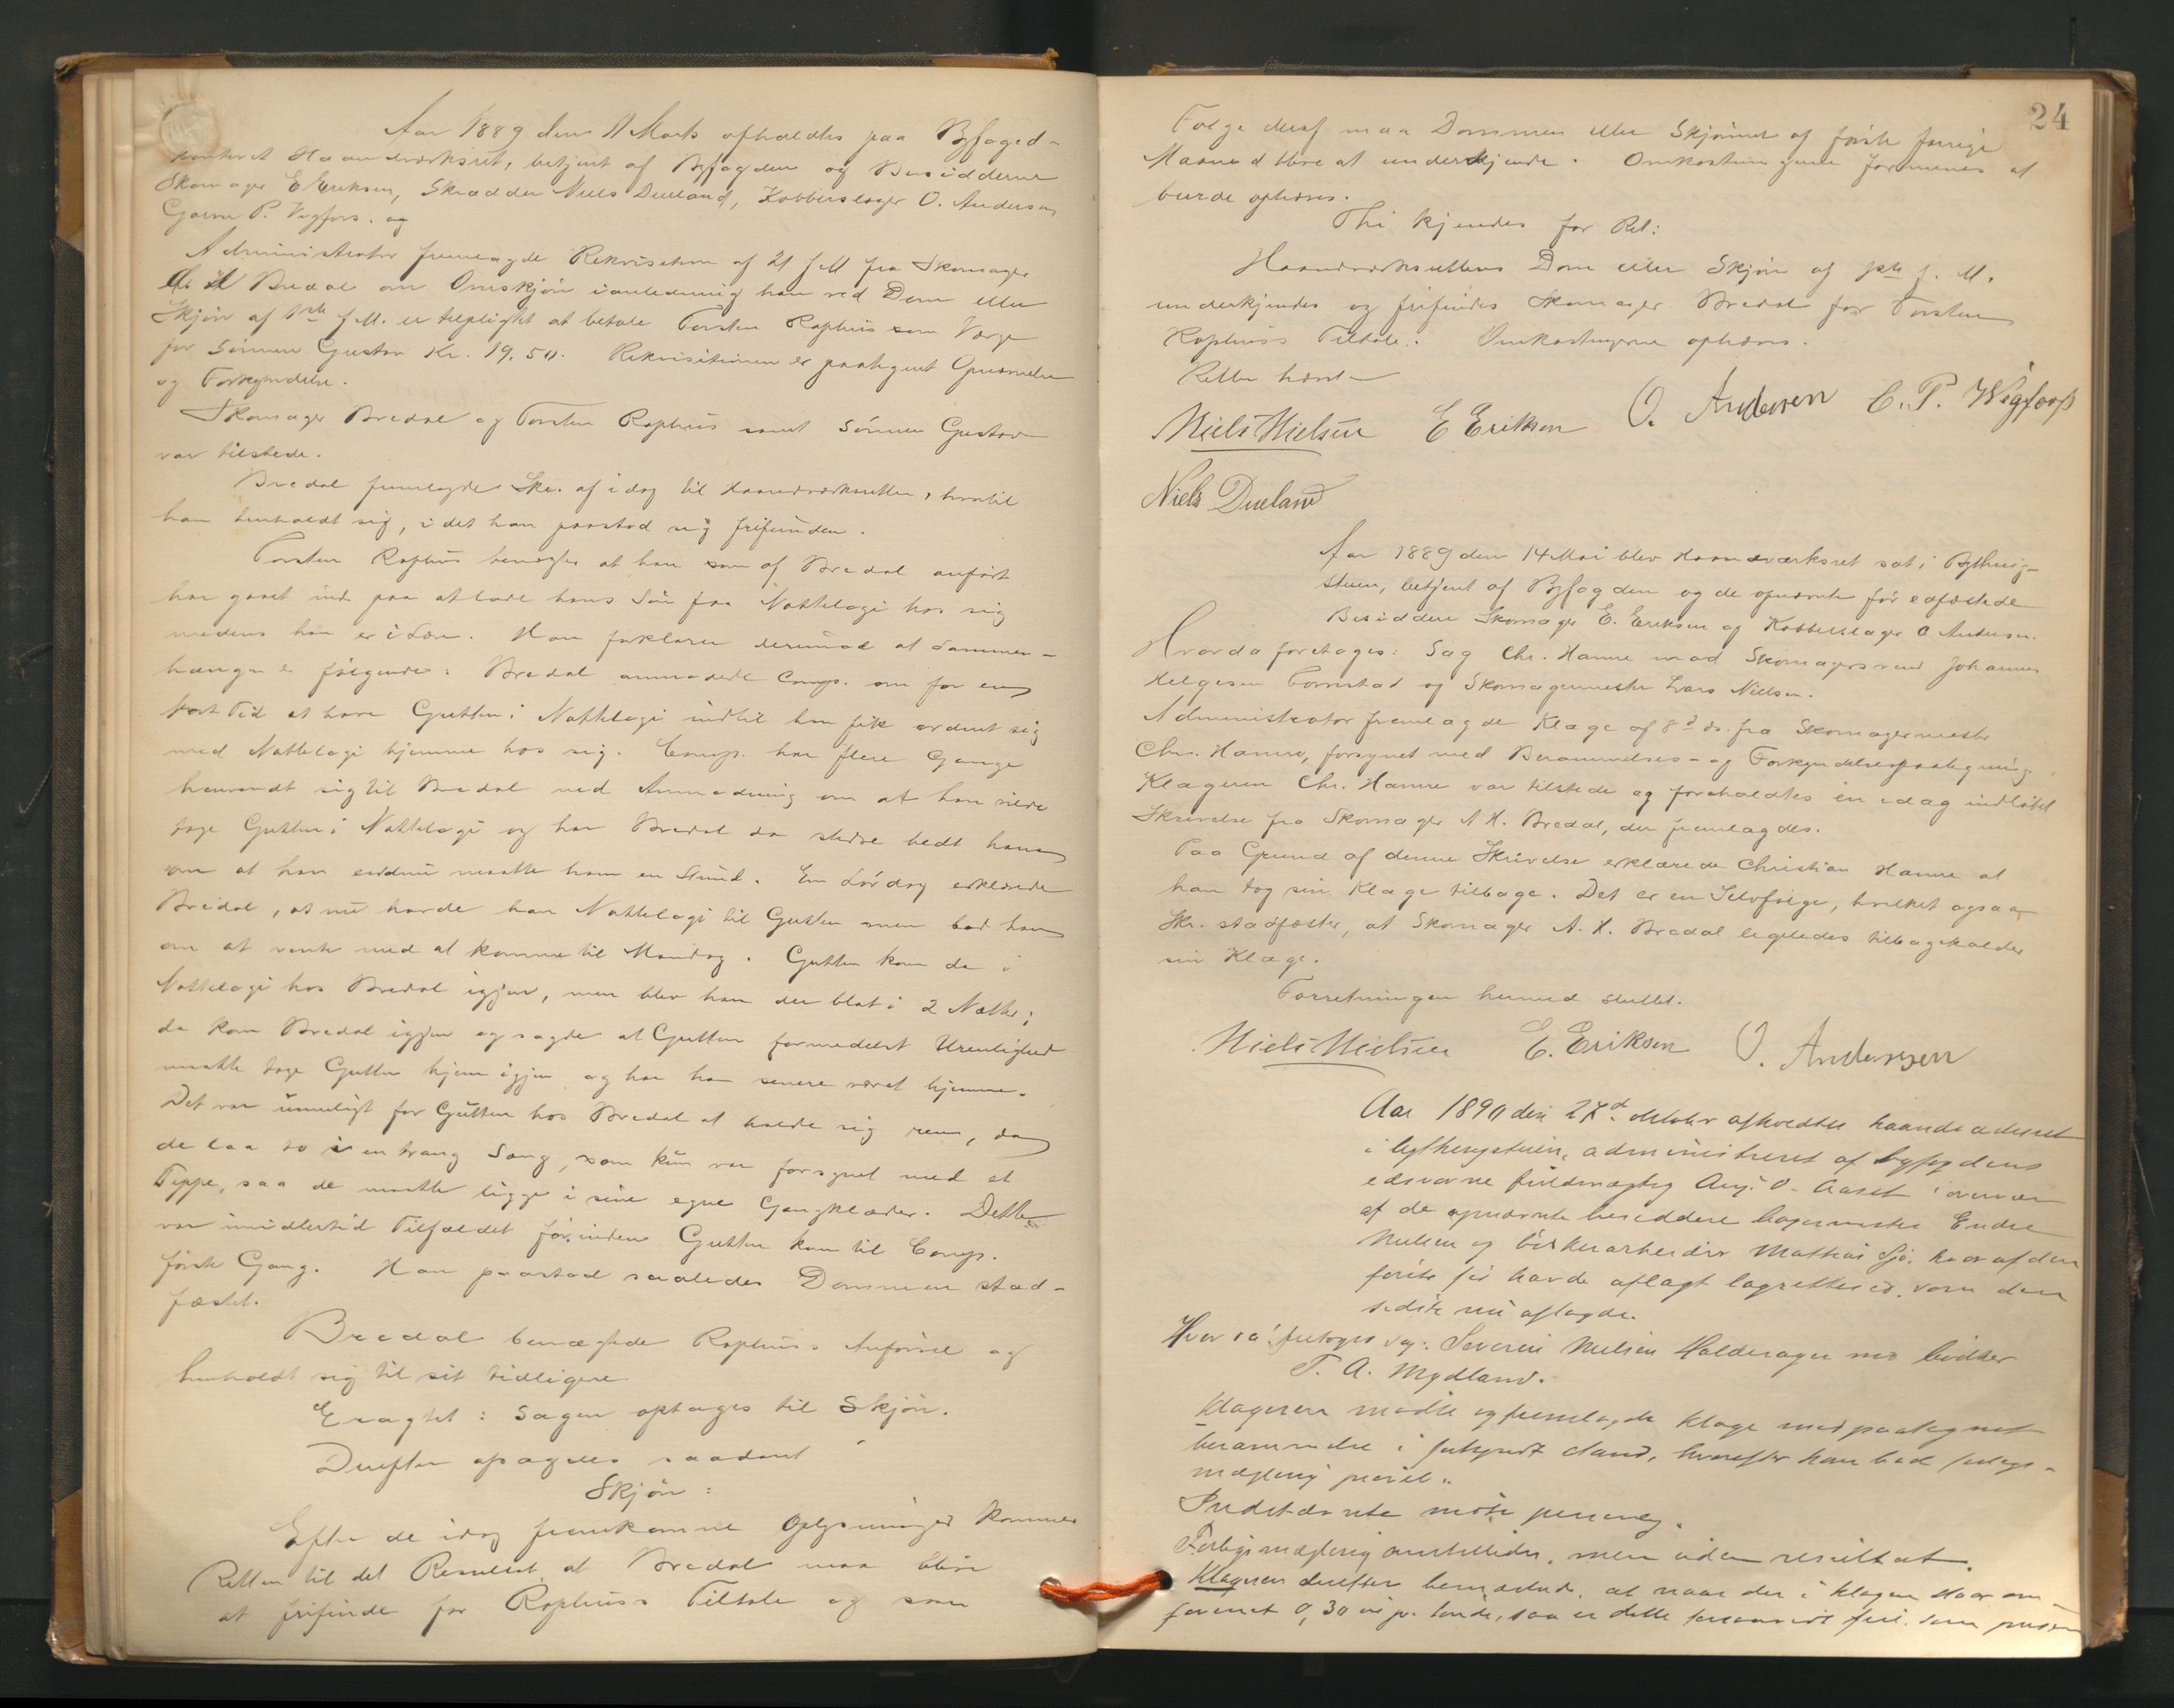 Aar 1889 den 11 Marts afholdtes paa Byfoged-
kontoret Haandværksret, betjent af Byfogden og Bisidderne
Skomager E Eriksen, Skrædder Niels Dueland, Kobberslager O. Andersen
Garver P. Vigfors. og
Administrator fremlagde Rekvisition af 21 f M fra Skomager
A H Bredal om Omskjøn i anledning han ved Dom eller
Skjøn af 1ste f M. er tilpligtet at betale Torsten Raphus som Verge
for Sønnen Gustav Kr. 19.50. Rekvisitionen er paategnet Opnævnelse
og Forkyndelse.
Skomager Bredal og Torsten Raphus samt Sønnen Gustav
var tilstede.
Bredal fremlagde Skr. af idag til Haandværksretten, hvortil
han henholdt sig, i det han paastod sig frifunden.
Torsten Raphus benægter at han som af Bredal anført
har gaaet ind paa at lade hans Søn faa Nattelogi hos sig
medens han er i Lære. Han forklarer derimod at Sammen-
hængen er følgende: Bredal anmodede Comp. om for en
kort Tid at have Gutten i Nattelogi indtil han fik ordnet sig
med Nattelogi hjemme hos sig. Comp. har flere Gange
henvendt sig til Bredal med Anmodning om at han vilde
tage Gutten i Nattelogi og har Bredal da stedse bedt ham
om at han endnu maatte ham en Stund. En Lørdag erklærede
Bredal, at nu havde han Nattelogi til Gutten men bad ham
om at vente med at komme til Mandag. Gutten kom da i
Nattelogi hos Bredal igjen, men blev han der blot i 2 Nætter;
da kom Bredal igjen og sagde at Gutten formedelst Urenlighed
maatte tage Gutten hjem igjen og har han senere været hjemme.
Det var umuligt for Gutten hos Bredal at holde sig ren, da
de laa to i en trang Sang, som kun var forsynet med et
Teppe, saa de maatte ligge i sine egne Gangklæder. Dette
var imidlertid Tilfældet før, inden Gutten kom til Comp.
første Gang. Han paastod saaledes Dommen stad-
fæstet.
Bredal benægtede Raphus's Anførsel og
henholdt sig til sit tidligere
Eragtet: Sagen optages til Skjøn.
Derefter afsagdes saadant
Skjøn:
Efter de idag fremkomne Oplysninger kommer
Retten til det Resultat at Bredal maa blive
at frifinde for Raphus's Tiltale og som
24
Følge deraf maa Dommen eller Skjønnet af første forrige
Maaned blive at underkjende. Omkostningerne formenes at
burde ophæves.
Thi kjendes for Ret:
Haandværksrettens Dom eller Skjøn af 1ste f. M.
underkjendes og frifindes Skomager Bredal for Torsten
Raphus's Tiltale. Omkostningerne ophæves.
Retten hævet
Niels Nielsen E Eriksen O. Andersen C. P. Wigforss
Niels Dueland
Aar 1889 den 14 Mai blev Haandværksret sat i Bythings-
stuen, betjent af Byfogden og de opnævnte før edfæstede
Bisiddere Skomager E. Eriksen og Kobberslager O Andersen.
Hvorda foretoges: Sag Chr. Hamre mod Skomagersvend Johannes
Helgesen Tornstad og Skomagermester Lars Nielsen.
Administrator fremlagde Klage af 8d ds. fra Skomagermester
Chr. Hamre, forsynet med Berammelses- og Forkyndelsespaategning.
Klageren Chr. Hamre var tilstede og foreholdtes en idag indløbet
Skrivelse fra Skomager A H. Bredal, der fremlagdes.
Paa Grund af denne Skrivelse erklærede Christian Hamre at
han tog sin Klage tilbage. Det er en Selvfølge, hvilket ogsaa
Skr. stadfæster, at Skomager A. H. Bredal ligeledes tilbagekalder
sin Klage.
Forretningen hermed sluttet.
Niels Nielsen E. Eriksen O. Andersen
Aar 1890 den 27d oktober afholdtes haandværksret
i bythingstuen, administreret af byfogdens
edsvorne fuldmægtig Aug. O. Aaset i overvær
af de opnævnte besiddere bagermester Endre
Nielsen og bødkerarbeider Mathias Sjø, hvoraf den
første før havde aflagt lagretteed, som den
sidste nu aflagde.
Hvorda foretoges sag: Severin Nielsen Halderager mod bødker
T. A. Mydland.
Klageren mødte og fremlagde klage med paategnet
berammelse i forkyndt stand, hvorefter han bad forligs-
mægling prøvet.
Indstævnte møtte personlig.
Forligsmægling anstilledes, men uden resultat.
Klageren derefter bemærkede, at naar der i klagen staar om-
forenet 0,30 øre pr. tønde, saa er dette